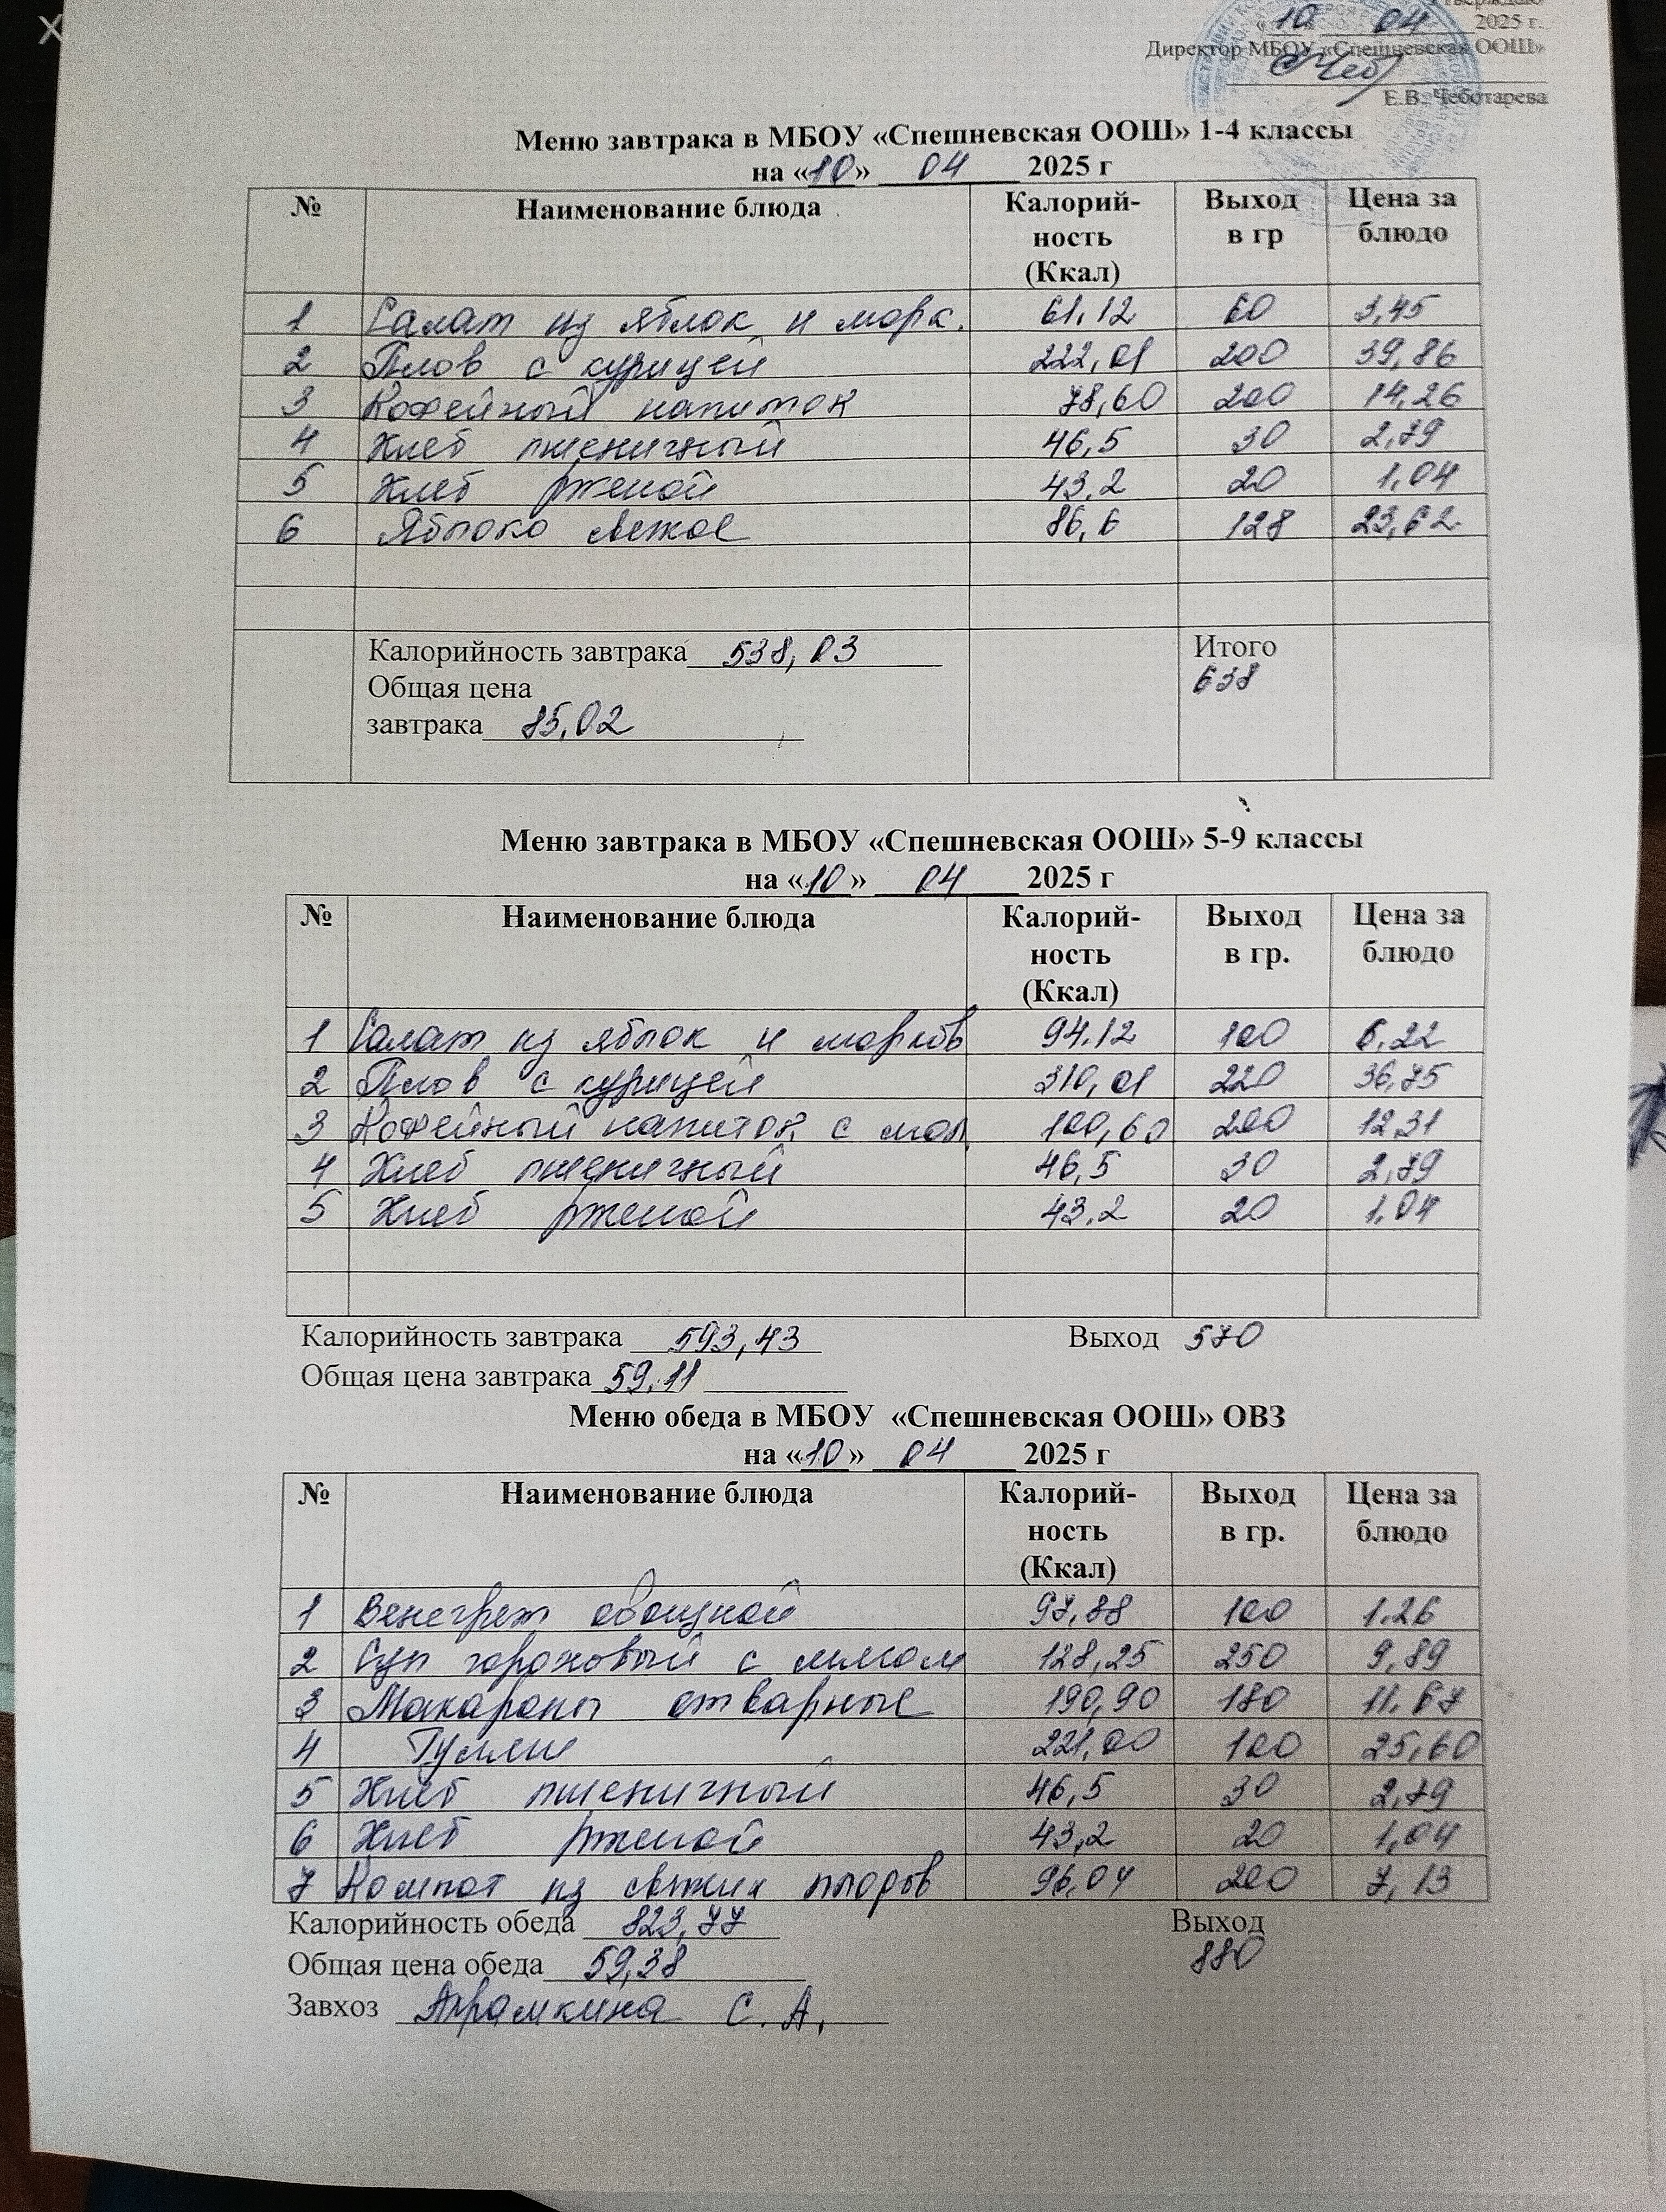 Утверждаю
« 10 » 04 2025 г.
Директор МБОУ «Спешневская ООШ»
Е.В. Чеботарева
Меню завтрака в МБОУ «Спешневская ООШ» 1-4 классы
на «10» 04 2025 г
№ Наименование блюда Калорий-ность (Ккал) Выход в гр Цена за блюдо
1 Салат из яблок и морк. 61,12 60 3,45
2 Плов с курицей 222,01 200 39,86
3 Кофейный напиток 78,60 200 14,26
4 Хлеб пшеничный 46,5 30 2,79
5 Хлеб ржаной 43,2 20 1,04
6 Яблоко свежее 86,6 128 23,62
Калорийность завтрака 538,03 Итого
Общая цена 638
завтрака 85,02
Меню завтрака в МБОУ «Спешневская ООШ» 5-9 классы
на «10» 04 2025 г
№ Наименование блюда Калорий-ность (Ккал) Выход в гр. Цена за блюдо
1 Салат из яблок и морковь 94.12 100 6,22
2 Плов с курицей 310,01 220 36,75
3 Кофейный напиток с мол. 100,60 200 12,31
4 Хлеб пшеничный 46,5 30 2,79
5 Хлеб ржаной 43,2 20 1,04
Калорийность завтрака 593,43 Выход 570
Общая цена завтрака 59,11
Меню обеда в МБОУ «Спешневская ООШ» ОВЗ
на «10» 04 2025 г
№ Наименование блюда Калорий-ность (Ккал) Выход в гр. Цена за блюдо
1 Венегрет овощной 97,88 100 1.26
2 Суп гороховый с мясом 128,25 250 9,89
3 Макароны отварные 190,90 180 11.67
4 Гуляш 221,00 100 25,60
5 Хлеб пшеничный 46,5 30 2,79
6 Хлеб ржаной 43,2 20 1,04
7 Компот из свежих плодов 96,04 200 7,13
Калорийность обеда 823,77 Выход
Общая цена обеда 59,38 880
Завхоз С. А.